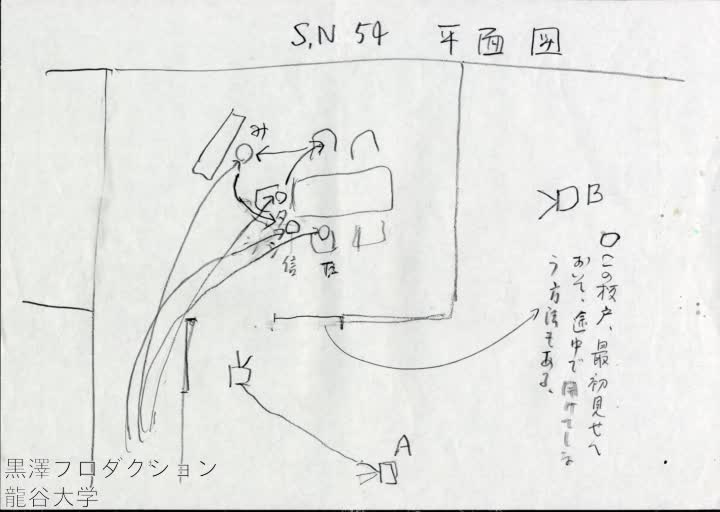 S,N 54 平面図
み
タ
信
B
〇この板戸、最初見せへ
おいて、途中で開けてしま
う方法もある、
A
黒澤プロダクション
龍谷大学